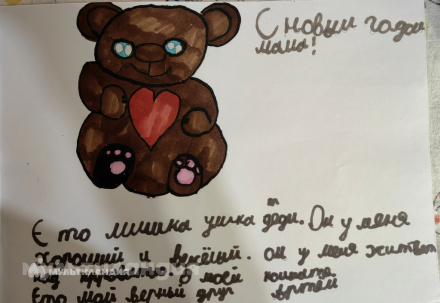 С новым годом
мама!
Є то мишка учка деди. Он у меня
хороший и весёлый. он у меня житвет
над кроватью в моей комнате.
Єто мой верный друг